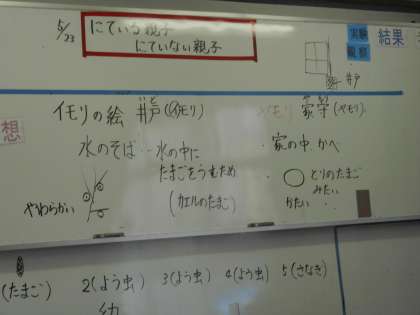 5/23
にている親子
にていない親子
実験
観察
結果
井戸
想
イモリの絵 井戸(イモリ)
ヤモリ 家守(ヤモリ)
水のそば・・水の中に
たまごをうむため
(カエルのたまご)
・家の中 かべ
やわらかい
とりのたまご
みたい
かたい
(たまご) 2(よう虫) 3(よう虫) 4(よう虫) 5(さなぎ)
幼